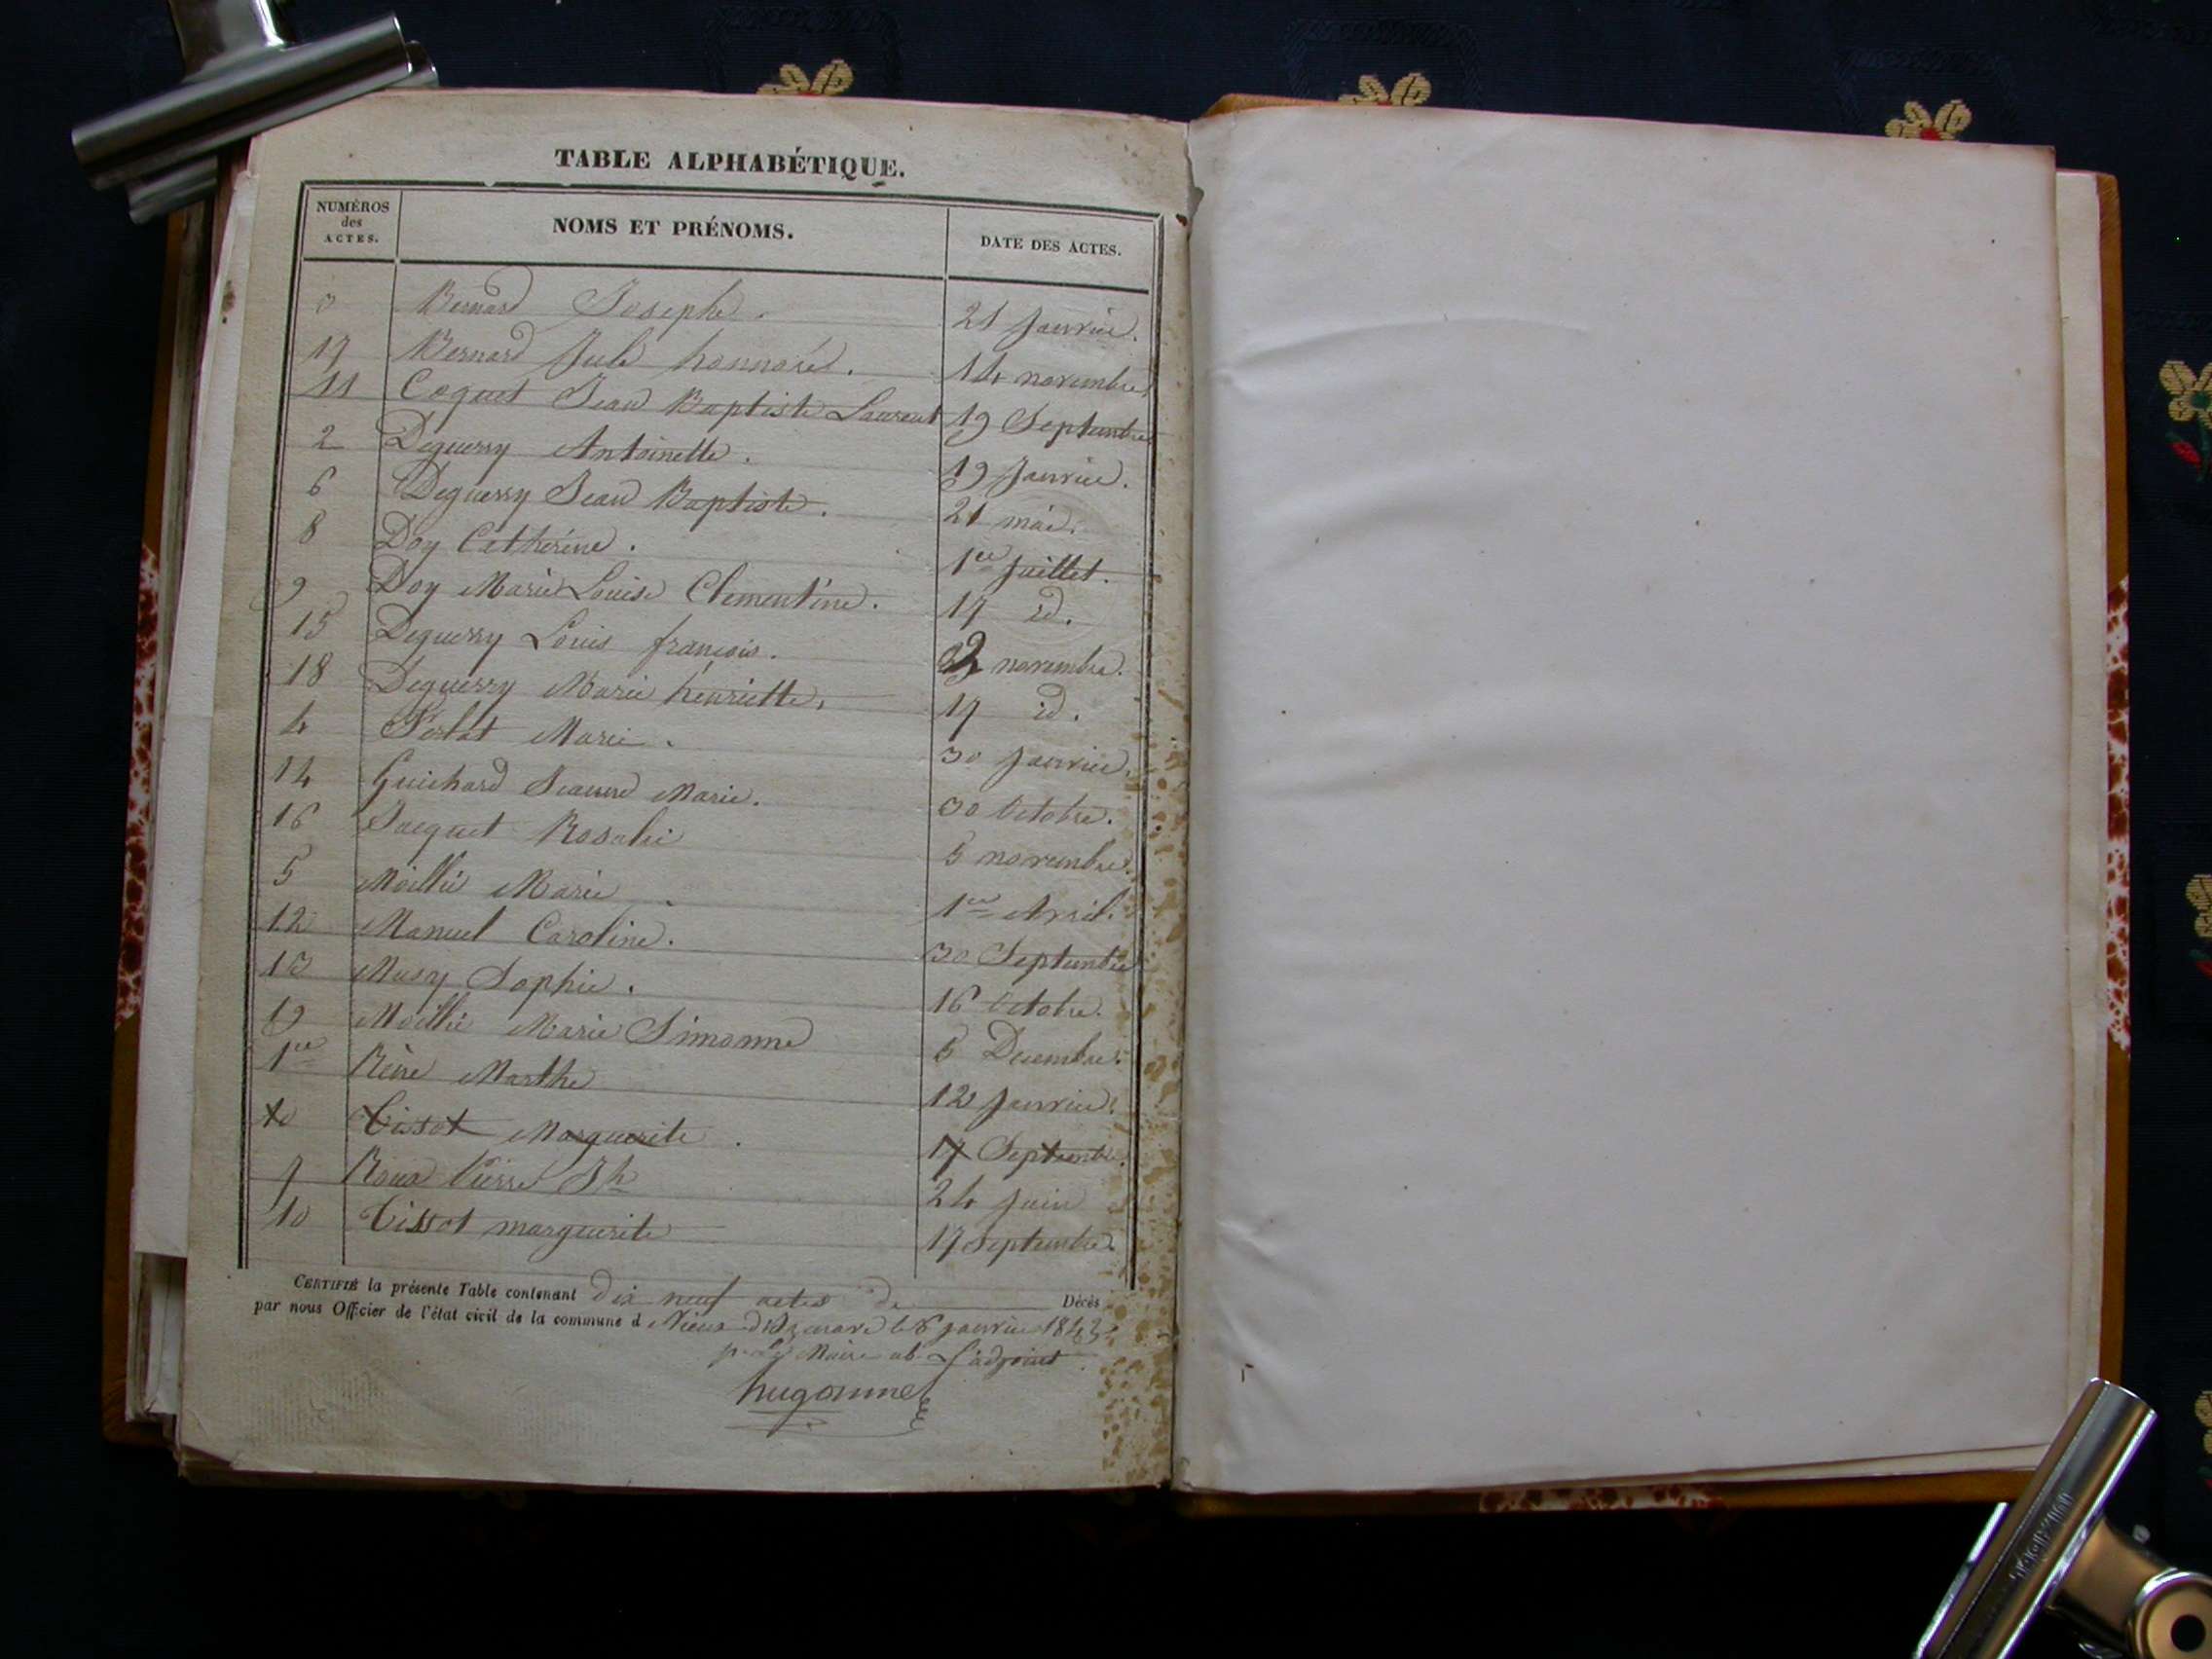 TABLE ALPHABÉTIQUE.
NUMÉROS des ACTES. NOMS ET PRÉNOMS. DATE DES ACTES.
3 Bernard Joseph. 21 Janvier.
17 Bernard Jule honnoré. 14 novembre
11 Coquet Jean Baptiste Laurent 19 Septembre
2 Deguerry Antoinette. 19 Janvier.
6 Deguerry Jean Baptiste. 21 mai.
8 Doy Catherine. 1er Juillet.
9 Doy Marie Louise Clementine. 17 id.
15 Deguerry Louis françois. 2 novembre.
18 Deguerry Marie henriette. 17 id.
4 Ferlat Marie. 30 Janvier.
14 Guichard Jeanne Marie. 30 Octobre.
16 Jacquet Rosalie 5 novembre.
5 Moillié Marie 1er Avril.
12 Manuel Caroline. 30 Septembre
13 Musy Sophie. 16 Octobre.
19 Moillié Marie Simonne 5 Decembre.
1er Rène Marthe 12 Janvier.
10 Tisot Marguerite. 17 Septembre.
7 Roux Pierre Jh 24 Juin
10 Tissot marguerite 17 Septembre.
CERTIFIÉ la présente Table contenant dix neuf actes de Décès
par nous Officier de l'état civil de la commune d Vieux d'Izenave le 8 janvier 1843
pr Le Maire ab. L'adjoint
hugonnet